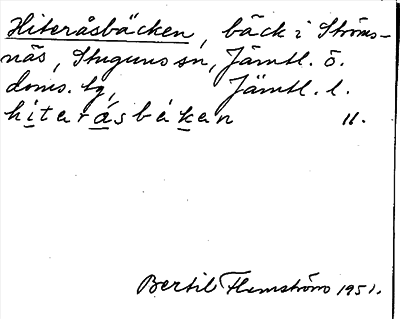 Hiteråsbäcken, bäck i Ströms-
näs, Stuguns sn, Jämtl. ö.
doms. tg, Jämtl. l.
hiteråsbäken 11.
Bertil Flemström 1951.